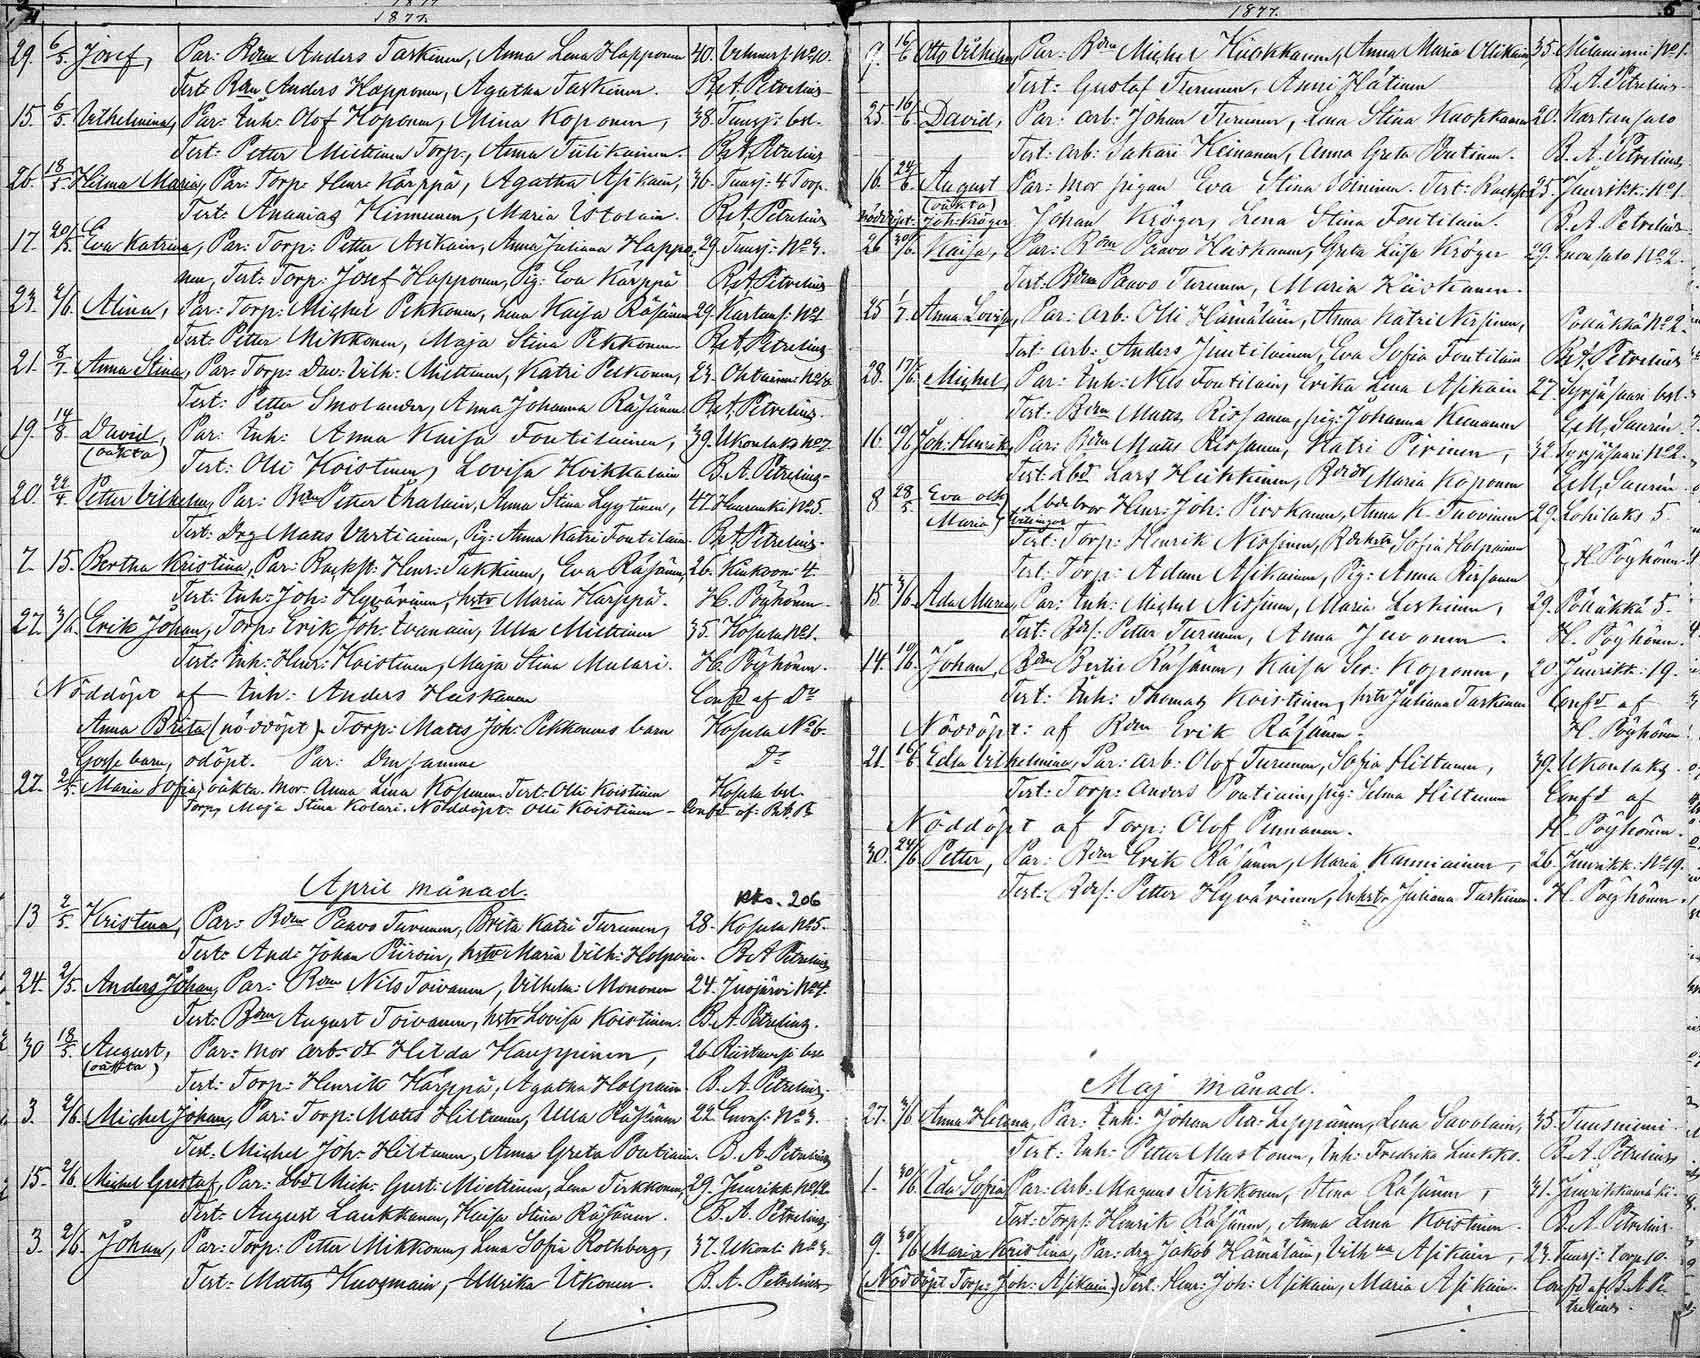 4
1877.
29. 6/5 Josef, Par: Bdm Anders Taskinen, Anna Lena Happonen 40. Nº10.
Test: Bdm Anders Happonen, Agatha Taskinen. B. A. Petrelius
15. 6/5 Vilhelmina, Par: Inh: Olof Koponen, Mina Koponen, 38. Tuusj: bol.
Test: Petter Miettinen Torp., Anna Tiilikainen. B. A. Petrelius
26. 18/5 Hilma Maria, Par: Torp: Henr: Kärppä, Agatha Asikain, 36. Tuusj: 4 Torp.
Test: Ananias Kinnunen, Maria B. A. Petrelius
17. 20/5 Eva Katrina, Par: Torp: Petter Asikain, Anna Juliana Happo- 29. Tuusj: Nº3.
nen, Test: Torp: Josef Happonen, Pig: Eva Kärppä B. A. Petrelius
23. 2/6 Alina, Par: Torp: Michel Pekkonen, Lena Kaisa Räsänen 29. Kartans: Nº1
Test: Petter Mikkonen, Maja Stina Pekkonen. B. A. Petrelius
21. 8/7 Anna Stina, Par: Torp: Dav: Vilh: Miettinen, Katri Pelkonen, 23.
Test: Petter Smolander, Anna Johanna Räsänen. B. A. Petrelius.
19. 14/8 David, Par: Inh: Anna Kaisa Fontilainen, 39. Ukonlaks Nº7.
(oäkta) Test: Olli Koistinen, Lovisa Hoikkalain B. A. Petrelius
20. 22/4 Petter Vilhelm, Par: Bdm Petter Ihalain, Anna Stina Lyytinen, 47. Nº5.
Test: Drg Matts Vartiainen, Pig: Anna Katri Fontilain. B. A. Petrelius.
7. 15. Bertha Kristina, Par: Backst: Henr: Takkinen, Eva Räsänen, 26. 4.
Test: Inh: Joh: Hyvärinen, hstr Maria Kärppä. H. Pöyhönen.
27. 3/6. Erik Johan, Torp: Erik Joh: Ivanain, Ulla Miettinen 35. Kosula Nº1.
Test: Inh: Henr: Koistinen, Maja Stina Mulari. H. Pöyhönen.
Nöddöpt af Inh: Anders Heiskanen Confd af Do
Anna Brita (nöddöpt) Torp: Matts Joh: Pekkonens barn Kosula Nº6.
Gosse barn, odöpt. Par: Den samme Do
27. 2/5. Maria Sofia, oäkta. Mor: Anna Lena Kosunen. Test: Olli Koistinen Kosula bol.
Torp, Maja Stina Kolari. Nöddöpt: Olli Koistinen - Confd af: B. A. P.
April månad. 206
13 2/5 Kristina, Par: Bdm Paavo Turunen, Brita Katri Turunen, 28. Kosula Nº5.
Test: And: Johan Piiroin, hstr Maria Vilh: Holpain. B. A. Petrelius
24. 2/5. Anders Johan, Par: Bdm Nils Toivanen, Vilhelm: Mononen 24. Juojärvi Nº4.
Test: Bdm August Toivanen, hstr Lovisa Koistinen. B. A. Petrelius.
30 18/5. August, Par: Mor arb. dt Hilda Kauppinen, 26. bol
(oäkta) Test: Torp: Henrik Kärppä, Agatha Holpain. B. A. Petrelius.
3. 2/6. Michel Johan, Par: Torp: Matts Hiltunen, Ulla Räsänen 22. Enons: Nº3.
Test: Michel Joh: Hiltunen, Anna Greta Pontinain. B. A. Petrelius
15. 2/6. Michel Gustaf, Par: Lbd Mich: Gust: Miettinen, Lena Tirkkonen, 29. Juurikk: Nº12.
Test: August Laukkanen, Kaisa Stina Räsänen. B. A. Petrelius
3. 2/6. Johan, Par: Torp: Petter Mikkonen, Lena Sofia Rothberg, 37. Ukonl: Nº3.
Test: Matts Kuosmain, Ulrika Utkonen. B. A. Petrelius
1877. 5
9. 16/6 Otto Vilhelm, Par: Bdm Michel Kuokkanen, Anna Maria Olikain, 35. Nº1.
Test: Gustaf Turunen, Anni Hätinen B. A. Petrelius
25. 16/6. David, Par: Arb: Johan Turunen, Lena Stina Kuokkanen 20. Kartansalo
Test: Arb: Sakari Heinonen, Anna Greta Pontinen. B. A. Petrelius
16. 24/6. August Par: Mor pigan Eva Stina Soininen. Test: Backst 25. Juurikk: Nº1.
(oäkta)
nöddöpt: Joh: Kröger Johan Kröger, Lena Stina Fontilain. B. A. Petrelius
26 30/6. Kaisa, Par: Bdm Paavo Heiskanen, Greta Lisa Kröger 29. Enonsalo Nº2.
Test: Bdm Paavo Turunen, Maria Heiskanen.
25 1/7. Anna Lovisa, Par: Arb: Olli Hämäläin, Anna Katri Nissinen, Pölläkkä Nº2.
Test: Arb: Anders Juntilainen, Eva Sofia Fontilain B. A. Petrelius
28. 17/6. Michel, Par: Inh: Nils Fontilain, Erika Lena Asikain 27. Syrjäsaari bol.
Test: Bdm Matts Rissanen, pig: Johanna Kemanen C. M. Saurén.
16. 10/6 Joh: Henrik, Par: Bdm Matts Rissanen, Katri Pirinen, 32. Syrjäsaari Nº2.
Test: Lbd Lars Heikkinen, Bdr dr Maria Koponen C. M. Saurén.
8 28/5. Eva och Lbdr bror Henr: Joh: Pirskanen, Anna K. Tuovinen 29. Lohilaks 5
Maria tvillingar Test: Torp: Henrik Nissinen, Bdr hstr Sofia Holpainen
Test: Torp: Adam Asikainen, Pig: Anna Rissanen H. Pöyhönen.
15. 3/6. Ada Maria, Par: Inh: Michel Nissinen, Maria Leskinen, 29. Pölläkkä 5.
Test: Bds: Petter Turunen, Anna Juvonen. H. Pöyhönen.
14. 10/6. Johan, Bdm Bertil Räsänen, Kaisa Koponen, 20 Juurikk: 19.
Test: Inh: Thomas Koistinen, hstr Juliana Taskinen Confd af
Nöddöpt: af Bdm Erik Räsänen. H. Pöyhönen
21. 16/6 Edla Vilhelmina, Par: Arb: Olof Turunen, Sofia Hiltunen, 39. Ukonlaks
Test: Torp: Anders Pontinain, pig: Selma Hiltunen Confd af
Nöddöpt af Torp: Olof Pennanen. H. Pöyhönen.
30. 24/6 Petter, Par: Bdm Erik Räsänen, Maria Kunniainen, 26. Juurikk: Nº19.
Test: Bds: Petter Hyvärinen, Inhstr Juliana Taskinen. H. Pöyhönen.
Maj månad.
27. 3/6 Anna Helena, Par: Inh: Johan Pea: Leppänen, Lena Savolain, 35. Tuusniemi
Test: Inh: Petter Mustonen, Inh: Fredrika Linkko. B. A. Petrelius
1. 30/6. Ida Sofia, Par: Arb: Magnus Tirkkonen, Stina Räsänen, 31. Juurikkamäki.
Test: Torp: Henrik Räsänen, Anna Lena Koistinen. B. A. Petrelius.
9. 30/6 Maria Kristina, Par: drg Jakob Hämäläin, Vilhna Asikain, 23. Tuusj: torp 10.
(Nöddöpt Torp: Joh: Asikain) Test: Henr: Joh: Asikain, Maria Asikain. Confd af B. A. Pe-
trelius.